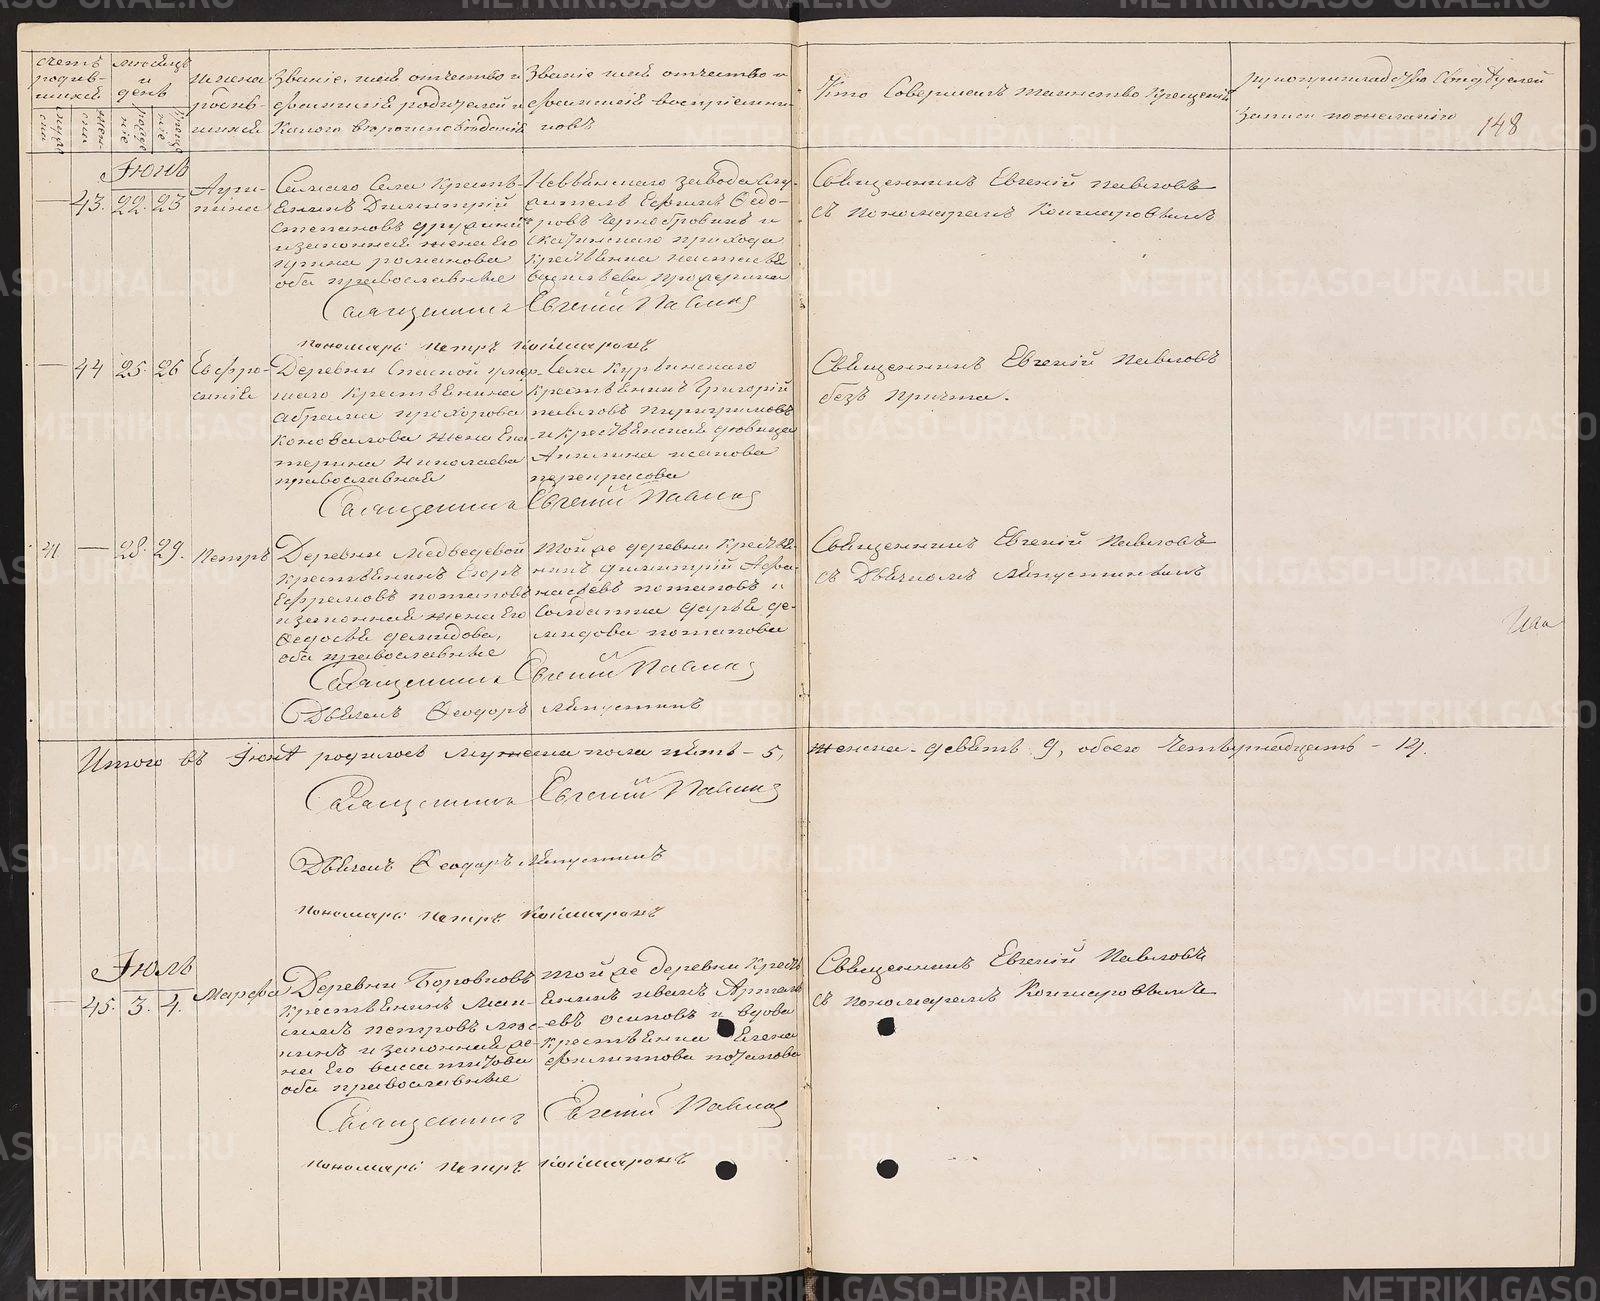 счетъ родив-шихся
мѣсяцъ и день
имена родив-шихся
Званіе, имя отчество и фамилія родителей и какого вѣроисповѣданія
Званіе имя отчество и фамилія воспріемни-ковъ
Кто совершалъ таинство крещенія
рукоприкладство свидѣтелей записи по желанію
148
Іюнь
— 43. 22. 23
Самаго Села Кресть-
янинъ Димитрій
Степановъ
и законная жена его
Ирина Романова
оба православные
Невьянскаго завода
Ефимъ Ѳедо-
ровъ Чернобровинъ и
прихода
Крестьянка Настасья
Васильева
Священникъ Евгеній Павловъ
съ пономаремъ Кошмаровымъ
Священникъ Евгеній Павловъ
пономарь Петръ Кошмаровъ
— 44 25. 26
Евфро-
синія
Деревни Спасской умер-
шаго Крестьянина
Абрама Прохорова
Коновалова жена Ека-
терина Николаева
православная
Села Курьинскаго
крестьянинъ Григорій
Павловъ
и крестьянская дѣвица
Перепрасова
Священникъ Евгеній Павловъ
безъ причта.
Священникъ Евгеній Павловъ
41 — 28. 29. Петръ
Деревни Медведевой
крестьянинъ Егоръ
Ефремовъ Потаповъ
и законная жена его
Ѳедосья Демидова,
оба православные
той же деревни кресть-
нинъ Димитрій Афа-
насьевъ Потаповъ и
солдатка Дарья Де-
мидова Потапова
Священникъ Евгеній Павловъ
съ Дьячкомъ Ляпустинымъ
Священникъ Евгеній Павловъ
Дьячекъ Ѳеодоръ Ляпустинъ
Итого въ Іюнѣ родилось мужеска пола пять - 5, женска - девять 9, обоего четырнадцать - 14.
Священникъ Евгеній Павловъ
Дьячекъ Ѳеодоръ Ляпустинъ
пономарь Петръ Кошмаровъ
Іюль
— 45. 3. 4. Марфа
Деревни Боровковъ
крестьянинъ Мак-
симъ Петровъ
и законная же-
на его Васса Титова
оба православные
той же деревни кресть-
янинъ Иванъ Артемь-
евъ Осиповъ и вдова
крестьянка Елена
Филиппова Потапова
Священникъ Евгеній Павловъ
съ пономаремъ Кошмаровымъ
Священникъ Евгеній Павловъ
пономарь Петръ Кошмаровъ
METRIKI.GASO-URAL.RU